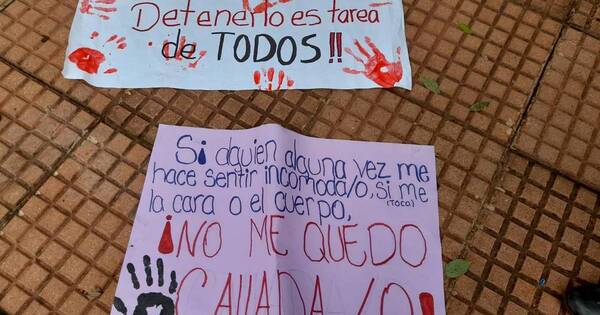 Detenerlo es tarea
de TODOS!!
Si alguien alguna vez me
hace sentir incomoda/o, si me
(TOCA)
la cara o el cuerpo,
¡NO ME QUEDO
CAllADA/O!